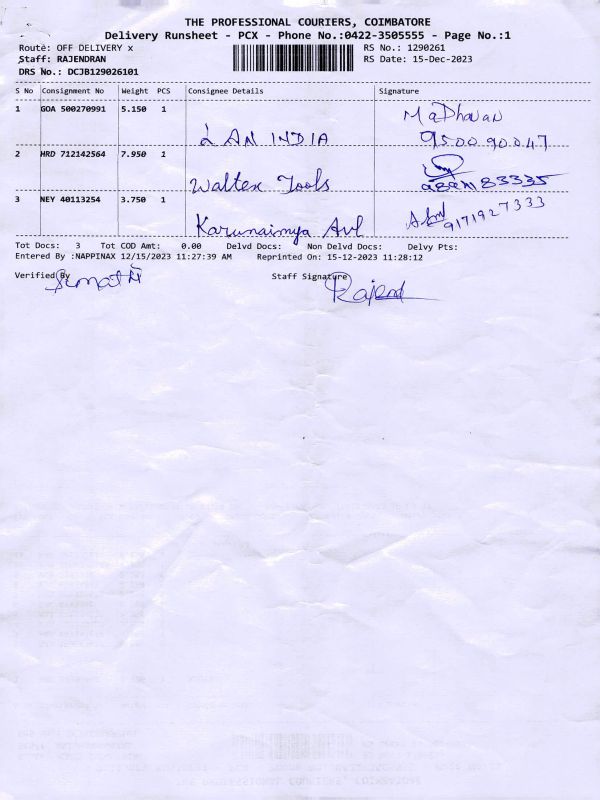 THE PROFESSIONAL COURIERS, COIMBATORE
Delivery Runsheet - PCX - Phone No.:0422-3505555 - Page No.:1
Route: OFF DELIVERY x RS No.: 1290261
Staff: RAJENDRAN RS Date: 15-Dec-2023
DRS No.: DCJB129026101
S No Consignment No Weight PCS Consignee Details Signature
1 GOA 500270991 5.150 1 MaDhavan
LAN INDIA 9500 90047
2 HRD 712142564 7.950 1
Walter Tools 83335
3 NEY 40113254 3.750 1 9171927333
Karunaimya Avl
Tot Docs: 3 Tot COD Amt: 0.00 Delvd Docs: Non Delvd Docs: Delvy Pts:
Entered By :NAPPINAX 12/15/2023 11:27:39 AM Reprinted On: 15-12-2023 11:28:12
Verified By Staff Signature
Rajend